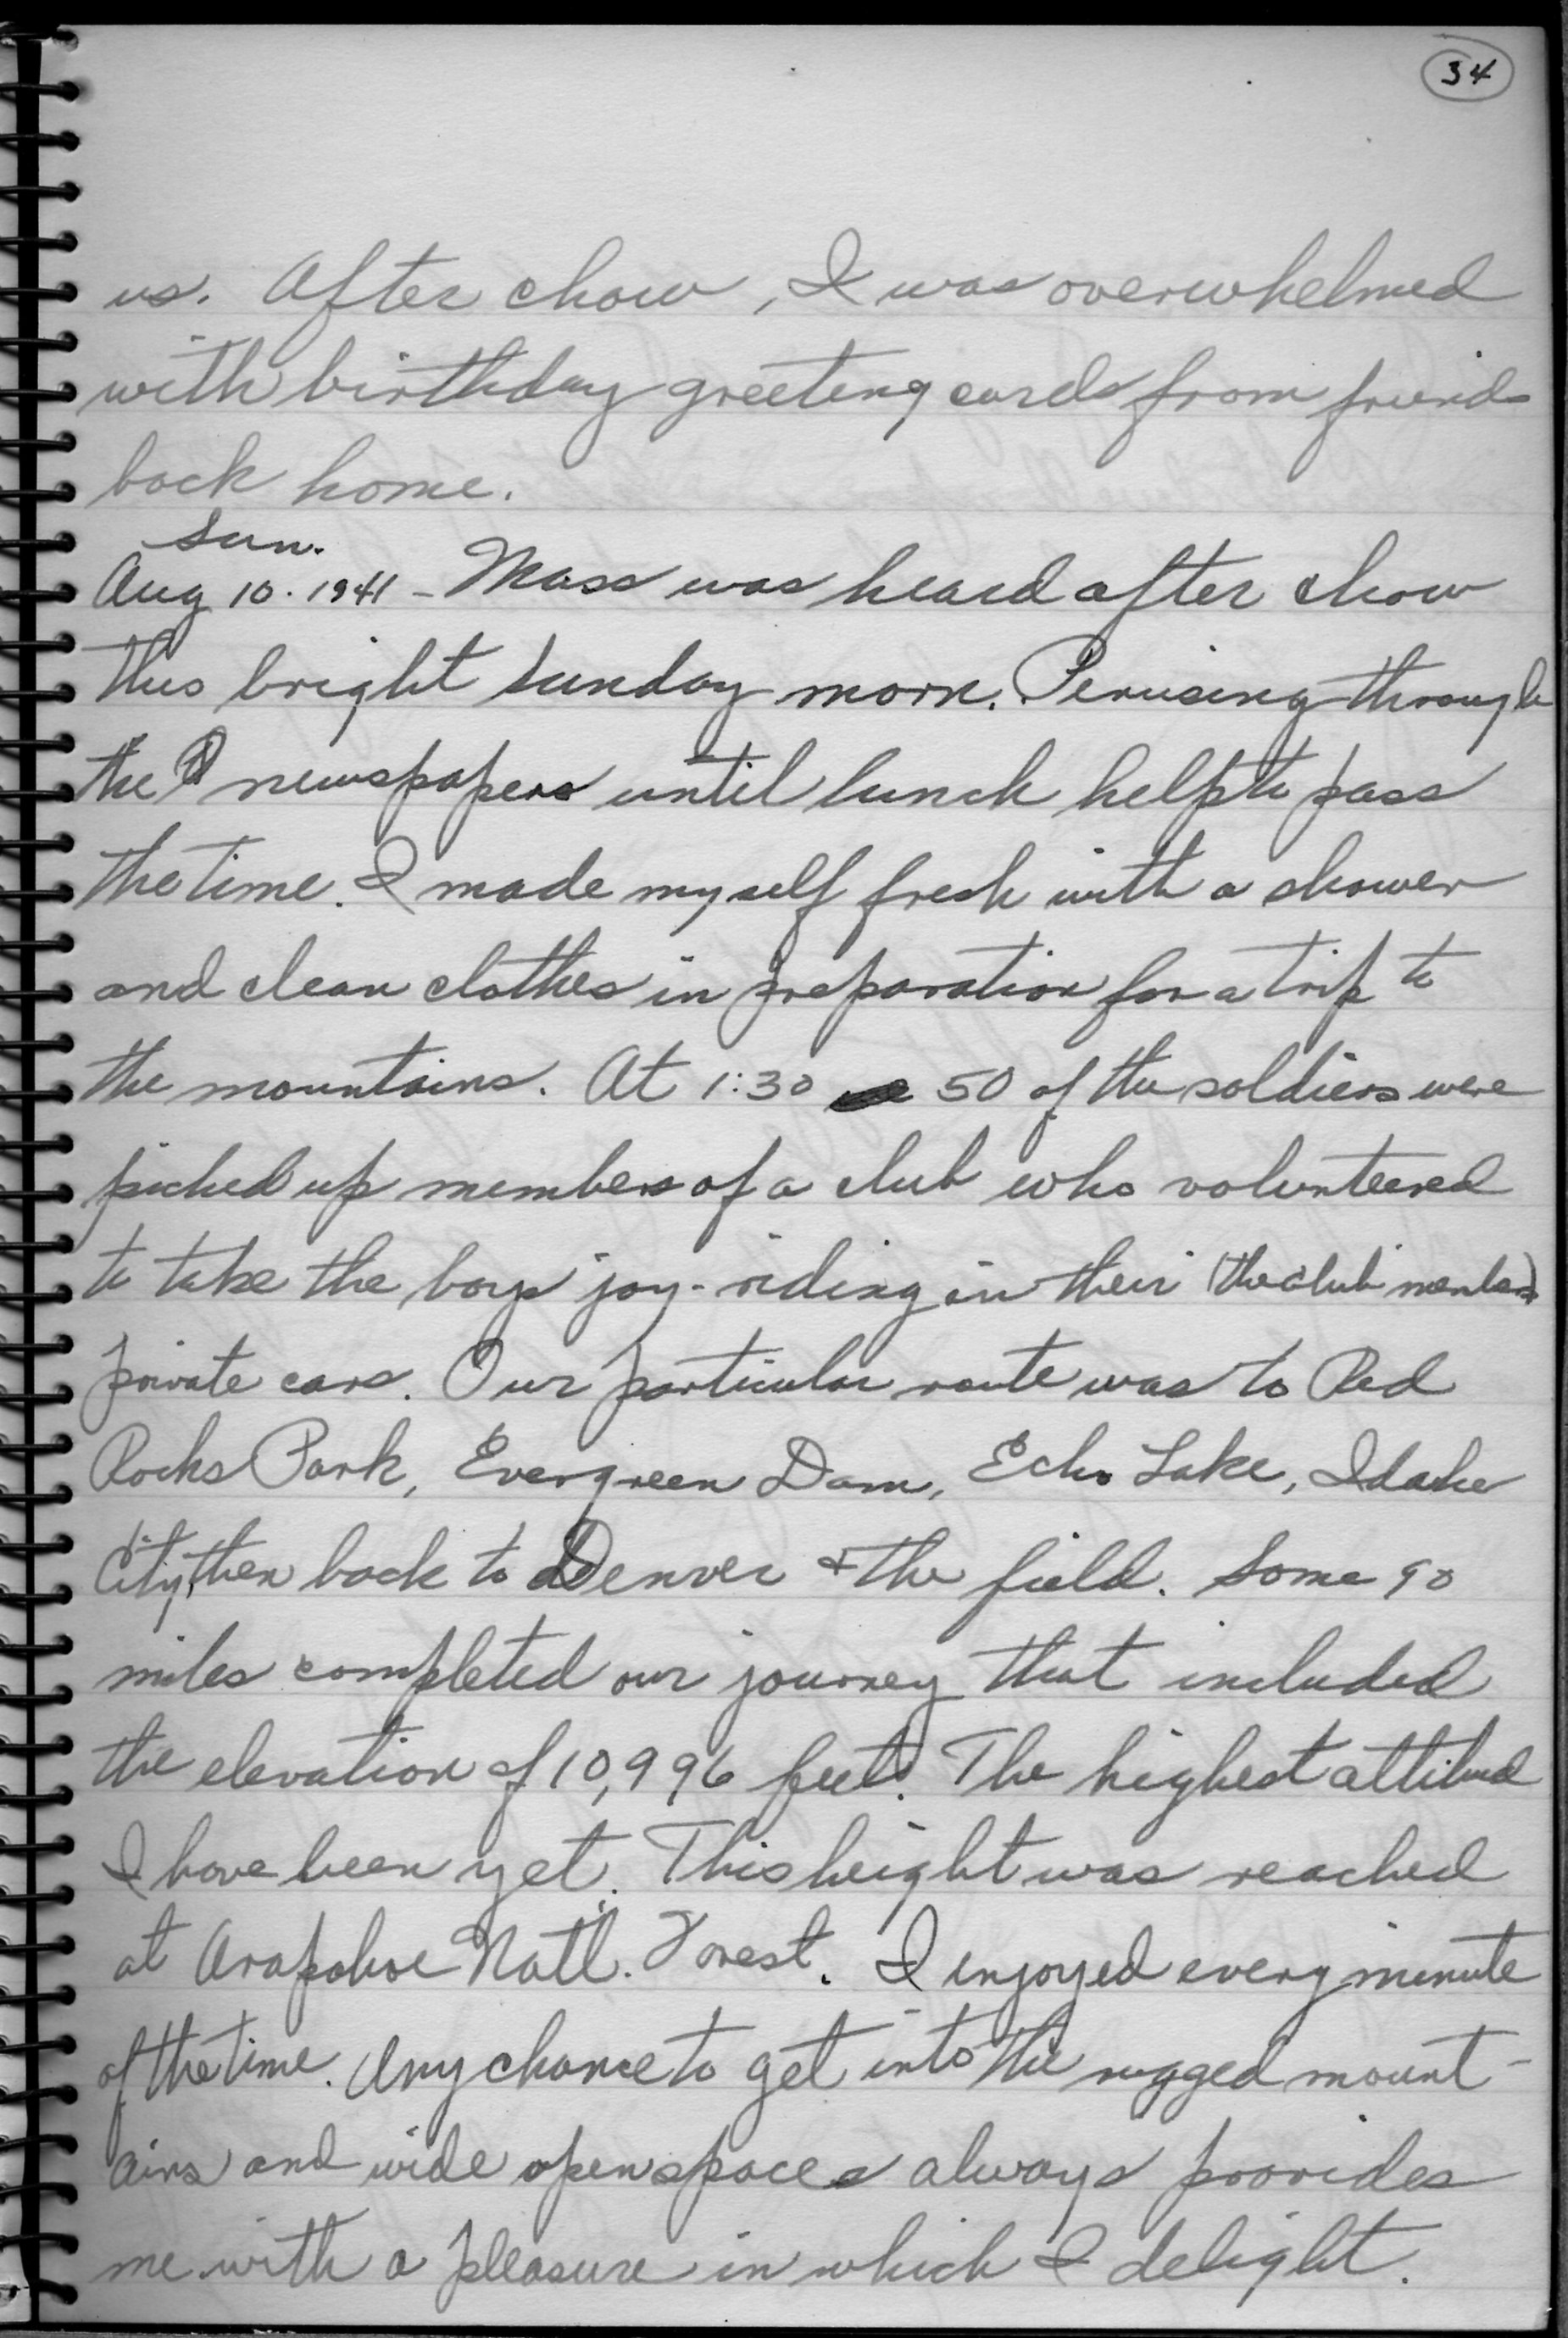 34
us. After chow, I was overwhelmed
with birthday greeting cards from friends
back home.
Sun.
Aug 10. 1941 - Mass was heard after chow
this bright Sunday morn. Perusing through
the newspapers until lunch help to pass
the time. I made myself fresh with a shower
and clean clothes in preparation for a trip to
the mountains. At 1:30 50 of the soldiers were
picked up members of a club who volunteered
to take the boys joy-riding in their (the club members)
private cars. Our particular route was to Red
Rocks Park, Evergreen Dam, Echo Lake, Idaho
City, then back to Denver & the field. Some 90
miles completed our journey that included
the elevation of 10,996 feet. The highest
I have been yet. This height was reached
at Arapahoe Natl. Forest. I enjoyed every minute
of the time. Any chance to get into the rugged mount-
ains and wide open spaces always provides
me with a pleasure in which I delight.